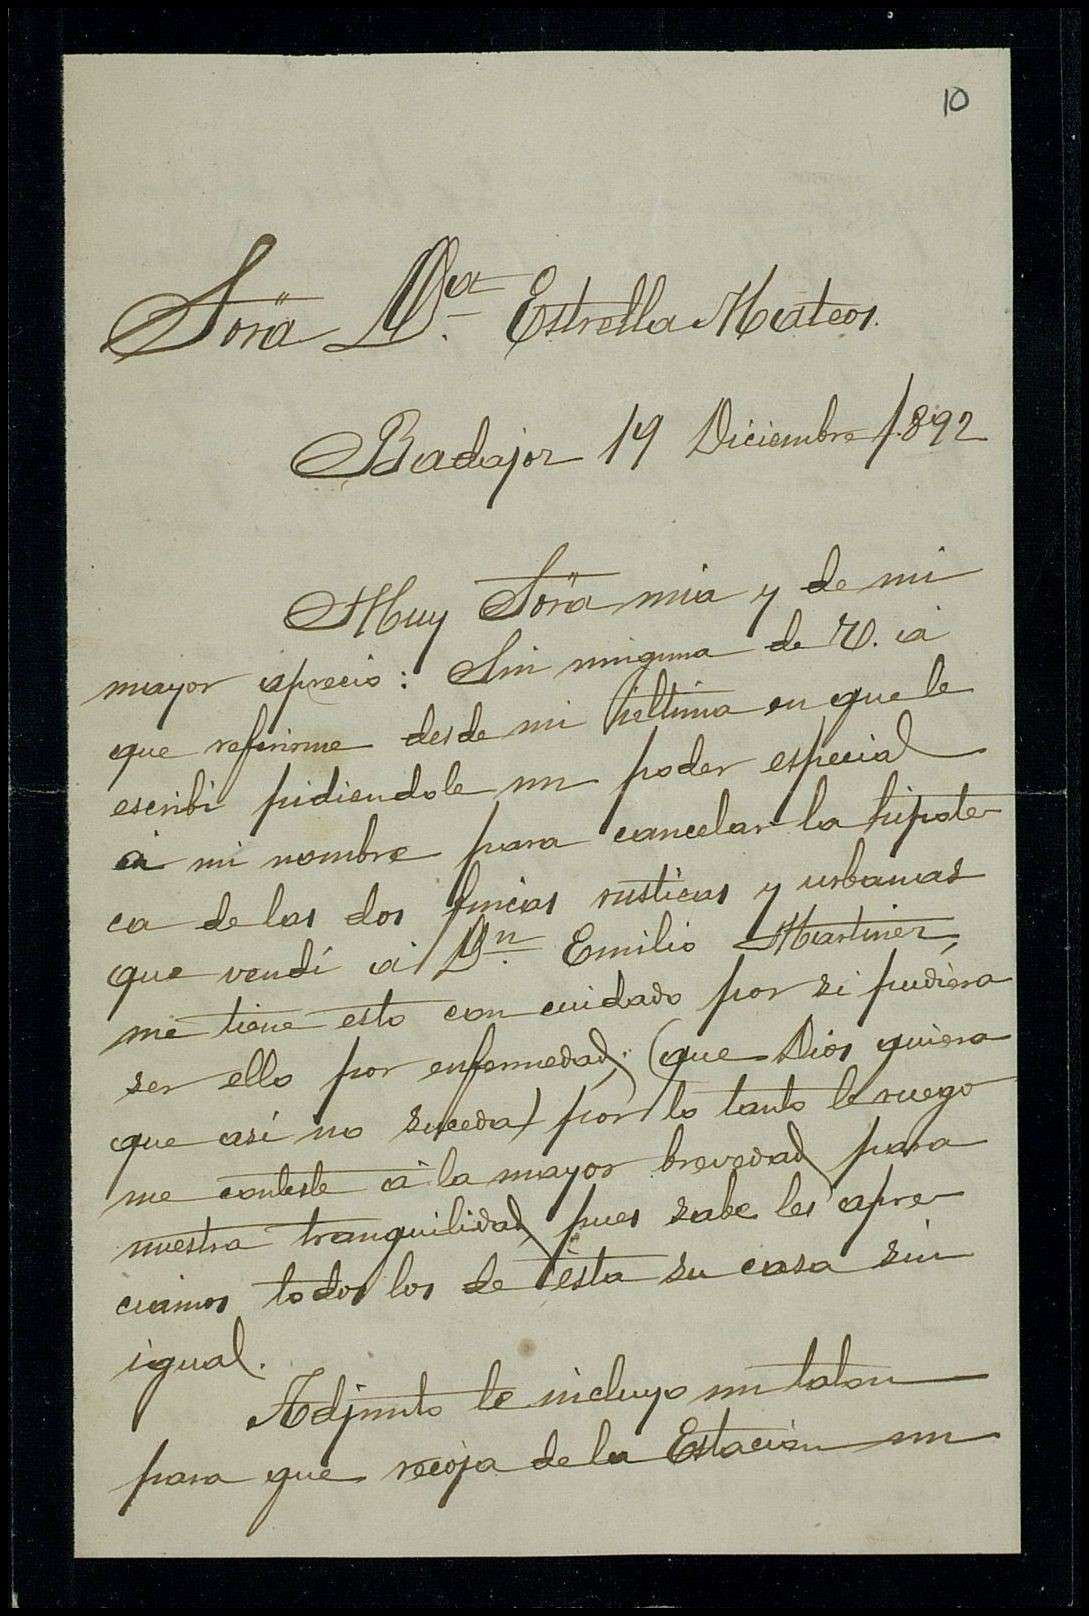 10
Sora Dª. Estrella Mateos.
Badajoz 19 Diciembre 1.892
Muy Sora mia y de mi
mayor aprecio: Sin ninguna de V. á
que referirme desde mi última en que le
escribi pidiendole un poder especial
á mi nombre para cancelar la hipote-
ca de las dos fincas rusticas y urbanas
que vendí á Dn. Emilio Martinez,
me tiene esto con cuidado por si pudiera
ser ello por enfermedad; (que Dios quiera
que así no suceda) por lo tanto le ruego
me conteste á la mayor brevedad para
nuestra tranquilidad, pues sabe les apre-
ciamos todos los de ésta su casa sin
igual.
Adjunto le incluyo un talon
para que recoja de la Estación un